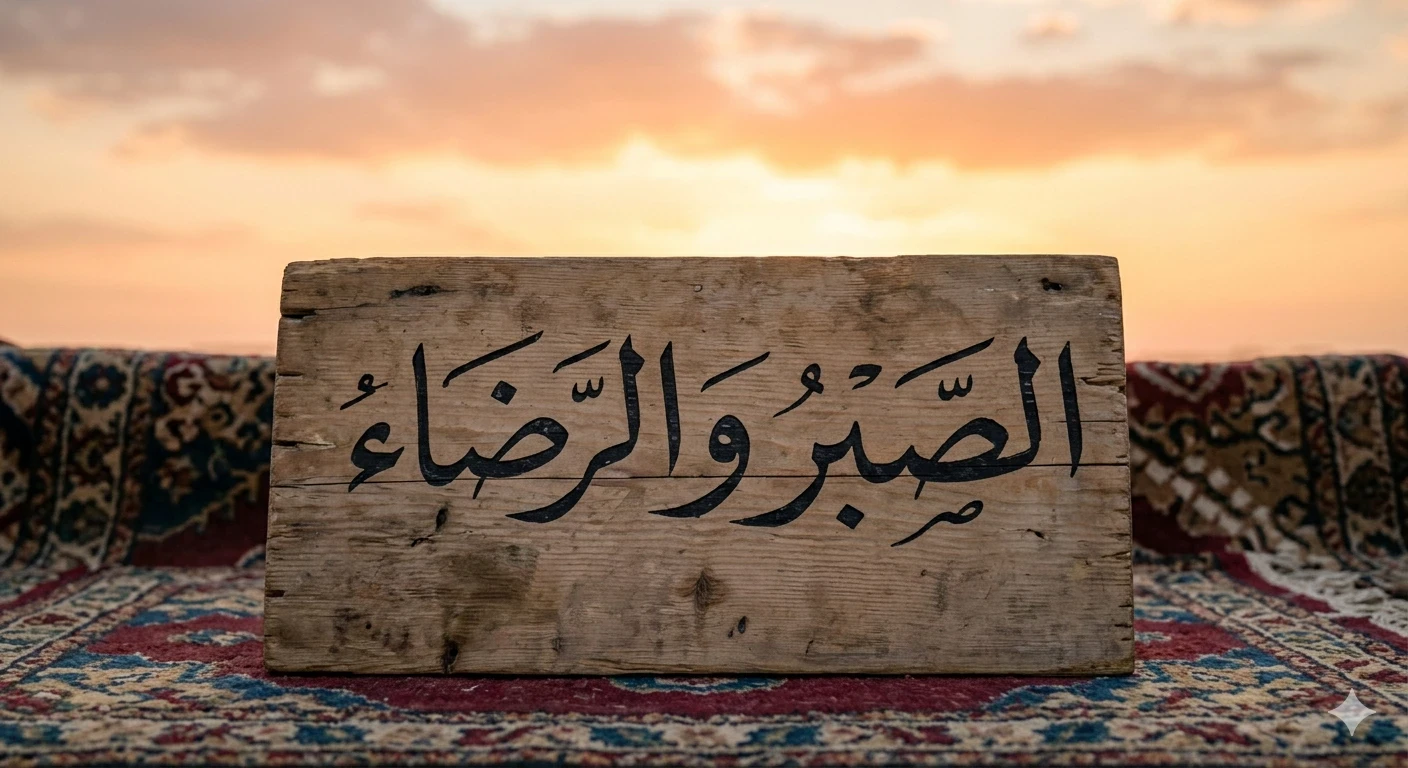 الصَّبْرُ وَالرَّضَاءُ